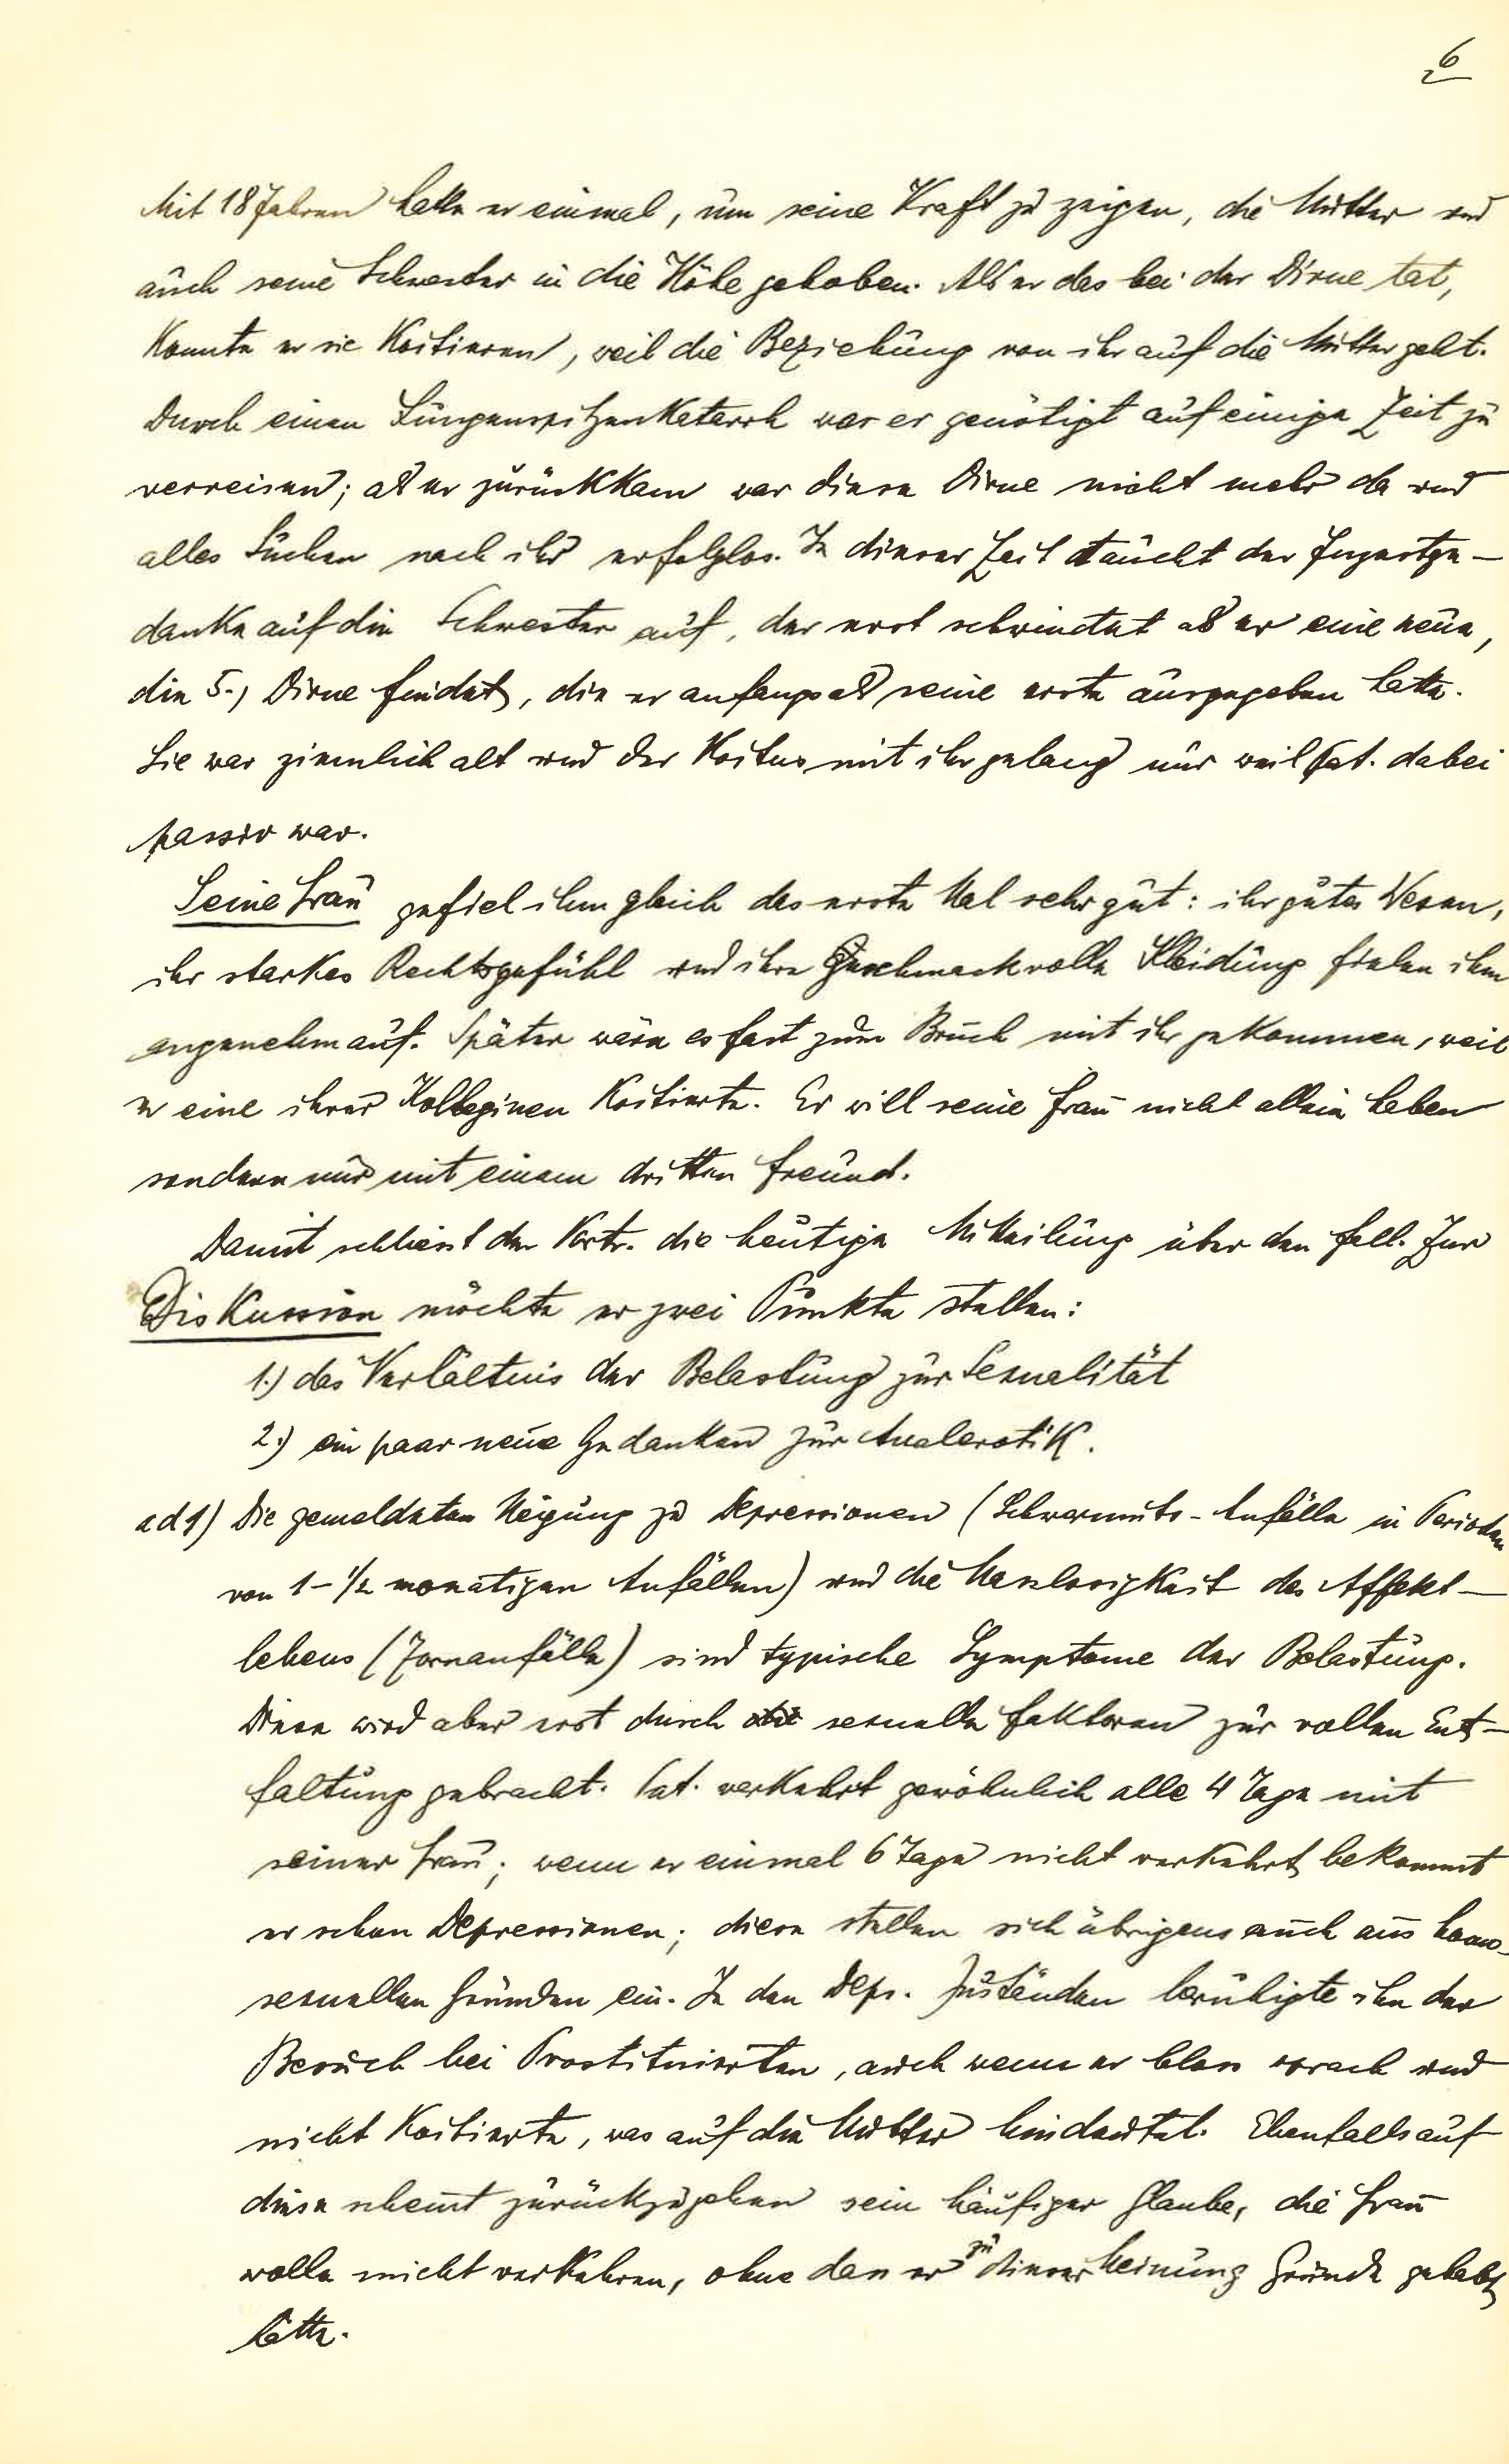 6
Mit 18 Jahren hatte er einmal, um seine Kraft zu zeigen, die Mutter und
auch seine Schwester in die Höhe gehoben. Als er das bei der Dirne tat,
konnte er sie koitieren, weil die Beziehung von ihr auf die Mutter geht.
Durch einen Lungenspitzenkatarrh war er genötigt auf einige Zeit zu
verreisen; als er zurückkam war diese Dirne nicht mehr da und
alles Suchen nach ihr erfolglos. In dieser Zeit taucht der Inzestge-
danke auf die Schwester auf, der erst schwindet als er eine neue,
die 5., Dirne findet, die er anfangs als seine erste ausgegeben hatte.
Sie war ziemlich alt und der Koitus mit ihr gelang nur weil Pat. dabei
passiv war.
Seine Frau gefiel ihm gleich das erste Mal sehr gut: ihr gutes Wesen,
ihr starkes Rechtsgefühl und ihre geschmackvolle Kleidung fielen ihm
angenehm auf. Später wäre es fast zum Bruch mit ihr gekommen, weil
er eine ihrer Kolleginen koitierte. Er will seine Frau nicht allein haben
sondern nur mit einem dritten Freund.
Damit schliesst der Vortr. die heutige Mitteilung über den Fall. Zur
Diskussion möchte er zwei Punkte stellen:
1.) das Verhältnis der Belastung zur Sexualität
2.) ein paar neue Gedanken zur Analerotik.
ad 1) Die gemeldeten Neigung zu Depressionen (Schwermuts-Anfälle in Perioden
von 1-1/2 monatigen Anfällen) und die Masslosigkeit des Affekt-
lebens (Zornanfälle) sind typische Symptome der Belastung.
Diese wird aber erst durch sexuelle Faktoren zur vollen Ent-
faltung gebracht. Pat. verkehrt gewöhnlich alle 4 Tage mit
seiner Frau; wenn er einmal 6 Tage nicht verkehrt, bekommt
er schon Depressionen; diese stellen sich übrigens auch aus homo-
sexuellen Gründen ein. In den Depr. Zuständen beruhigte ihn der
Besuch bei Prostituierten, auch wenn er bloss sprach und
nicht koitierte, was auf die Mutter hindeutet. Ebenfalls auf
diese scheint zurückzugehen sein häufiger Glaube, die Frau
wolle nicht verkehren, ohne dass er zu dieser Meinung Gründe gehabt
hätte.